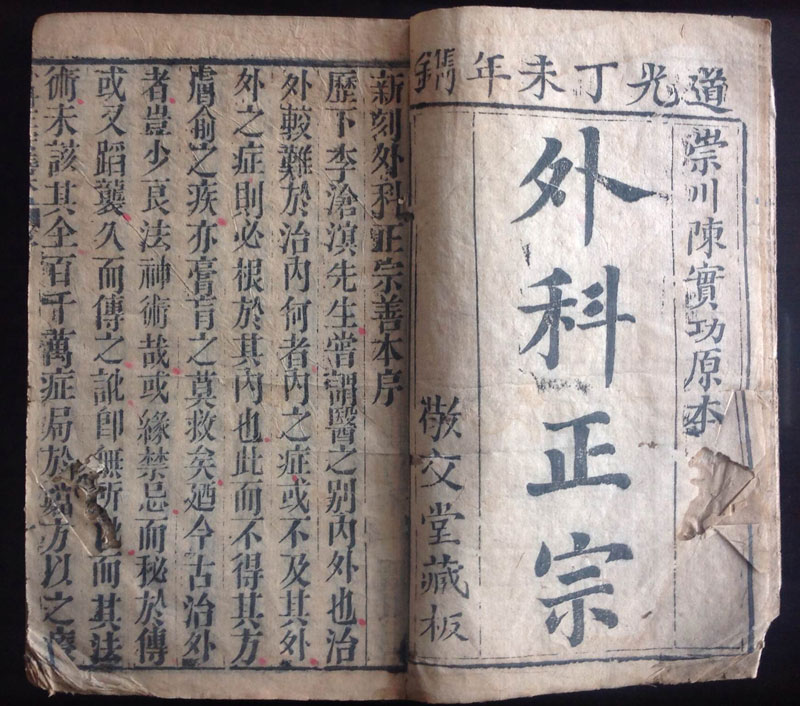 道光丁未年鐫
崇川陳實功原本
外科正宗
敬文堂藏板
新刻外科正宗善本序
歷下李滄溟先生嘗謂醫之別內外也治
外較難於治內何者內之症或不及其外
外之症則必根於其內也此而不得其方
膚俞之疾亦膏肓之莫救矣廼今古治外
者豈少良法神術哉或緣禁忌而秘於傳
或又蹈襲久而傳之訛卽無所而其法
術未該其全百千萬症局於方以之療